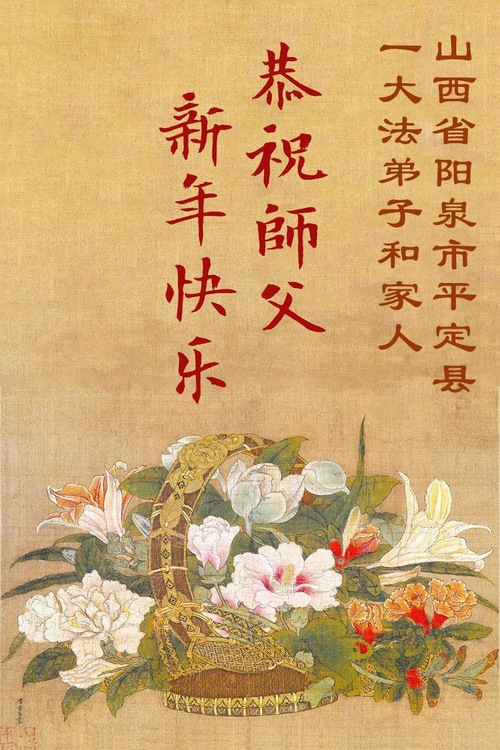 山西省阳泉市平定县
一大法弟子和家人
恭祝師父
新年快乐